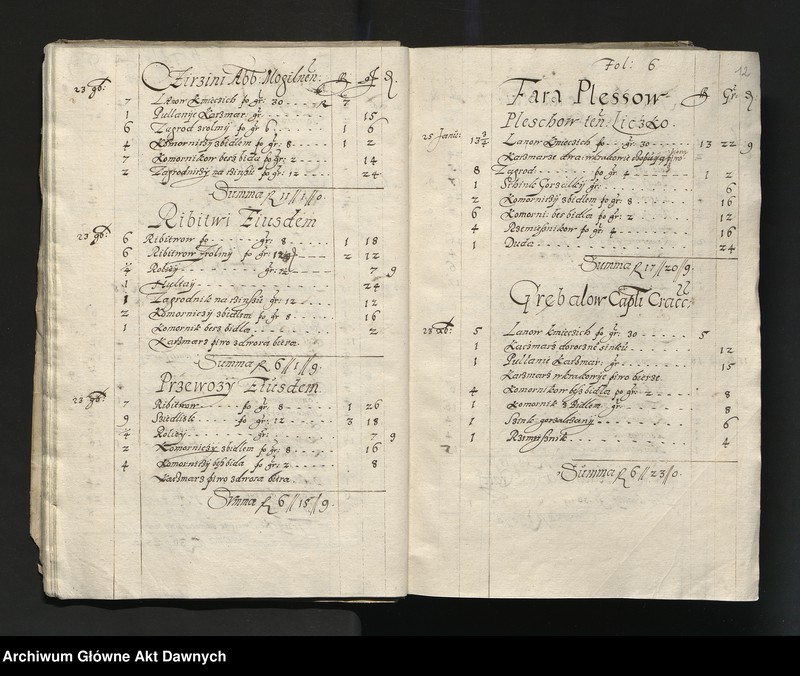 Czirzini Abb: Mogilnen: R gr d.
23 9b: 7 Lanow kmieczich po gr: 30 R 7
1 Pullanije Karzmar: gr 15
6 Zagrod zrolmy po gr 6 1 6
4 Komorniczy zbidlem po gr: 8 1 2
7 Komornikow bers bidla po gr: 2 14
2 Zagrodniczy na 12 24
Summa R 11 // 1 // 0.
Ribitwi Eiusdem
23 9b: 6 Ribitwow po gr: 8 1 18
6 Ribitwow zrolmy po gr: 12 2 12
Roley gr: 12 7 9
1 Hultay 24
1 Zagrodnik na gr: 12 12
2 Komorniczy zbidlem po gr 8 16
1 Komornik bers bidla 2
Karzmarz piwo zdwora bierze
Summa R 6 // 1 // 9.
Przewozy Eiusdem
23 9b: 7 Ribitwow po gr: 8 1 26
9 Siedlisk po gr: 12 3 18
Roley gr: 7 9
2 Komorniczy zbidlem po gr: 8 16
4 Komorniczy bers bidla po gr: 2 8
Karzmarz piwo zdwora bierze
Summa R 6 // 15 // 9.
Fol: 6. 12
Fara Plessow R Gr. d
Pleschow ten Liczko.
25 Janu: 13 3/4 Lanow kmieczich po gr: 30 13 22 9
Karzmarze dwa wkrakowie piwo
8 Zagrod po gr 4 1 2
1 Szink Gorzalky gr: 6
2 Komorniczy zbidlem po gr: 8 16
6 Komorni: bers bidla po gr: 2 12
4 Rzemieslnikow po gr: 4 16
1 Duda 24
Summa R 17 // 20 // 9.
Grębalow Capli Cracc.
23 5 Lanow kmieczich po gr: 30 5
1 Kaczmarz doroczne 12
1 Pullanie Karzmar: gr 15
Karzmarz wkrakowije piwo bierze
4 Komornikow bers bidla po gr: 2 8
1 Komornik z bidlem gr: 8
1 Szink gorzalczany 6
1 Rzemieslnik 4
Summa R 6 // 23 // 0.
Archiwum Główne Akt Dawnych